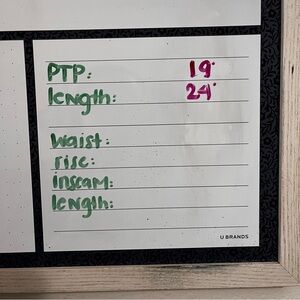 PTP: 19"
length: 24"
waist:
rise:
inseam:
length:
U BRANDS